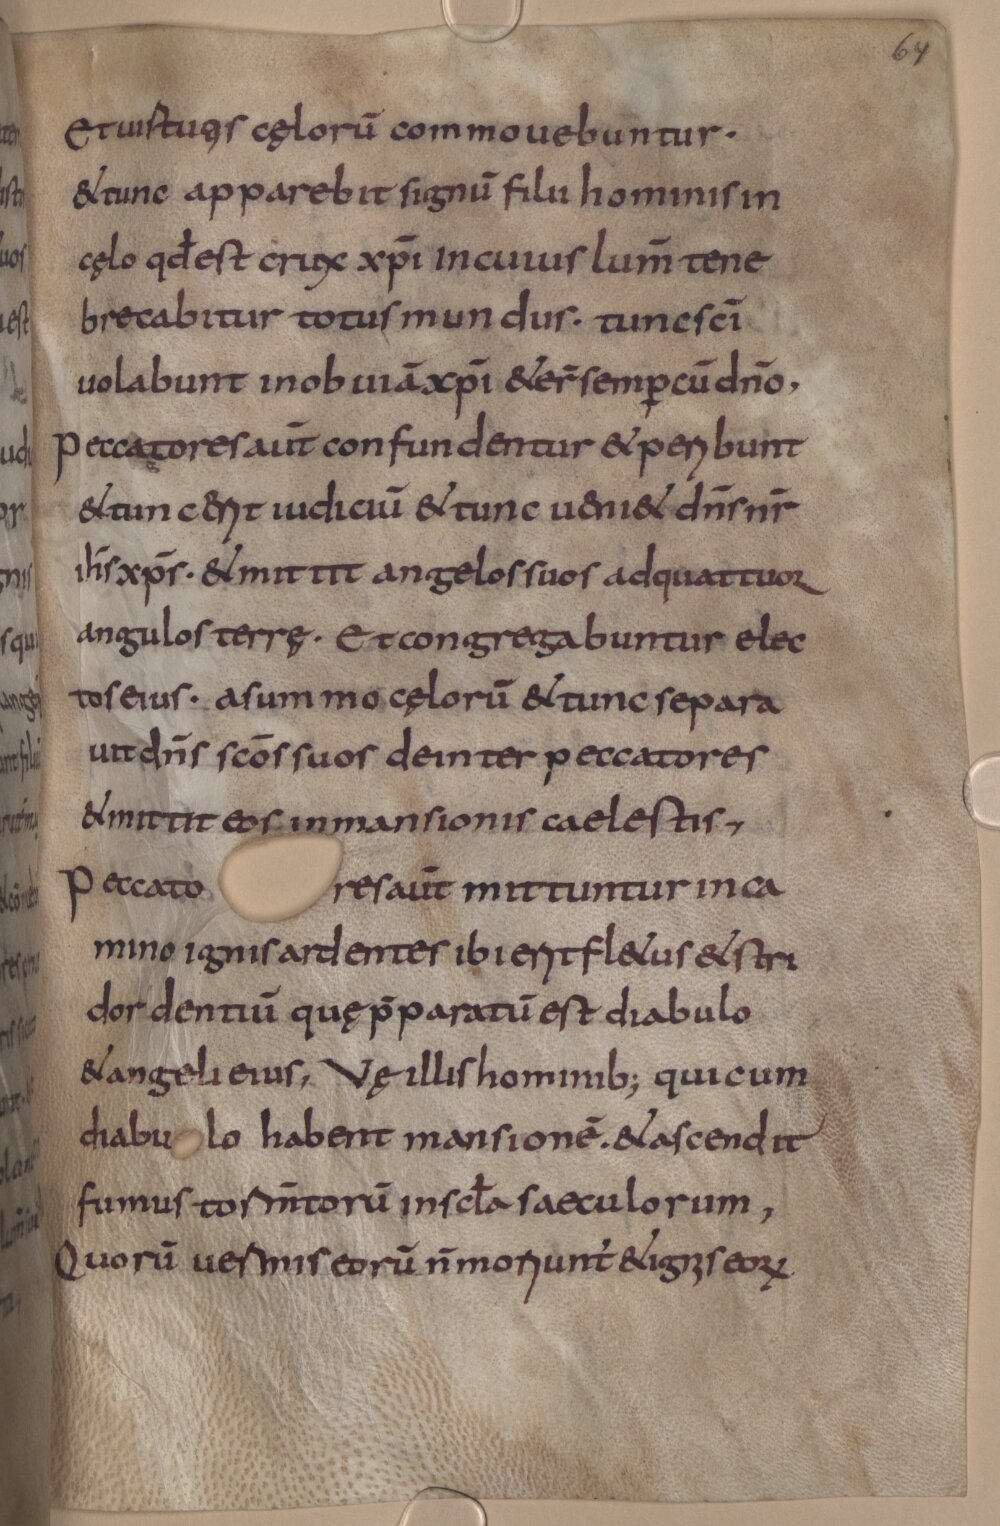 64
Et uirtutes cęlorū commouebuntur.
& tunc apparebit signū filii hominis in
cęlo qđ est crux xp̄i In cuius lum̄ tene
brecabitur totus mundus. tunc sc̄i
uolabunt in obuiā xp̄i & er̄ semp̱ cū dn̄o,
Peccatores aut̄ confundentur & peribunt
& tunc erit iudiciū & tunc ueni& dn̄s nr̄
ih̄s xp̄s. & mittit angelos suos ad quattuor
angulos terrę. Et congregabuntur elec
tos eius. a summo cęlorū & tunc separa
uit dn̄s sc̄os suos de inter peccatores
& mittit eos in mansionis caelestis,
Peccato res aut̄ mittuntur in ca
mino ignis ardentes ibi erit fl&us & stri
dor dentiū quę p̄paratū est diabulo
& angeli eius, Vę illis hominib; qui cum
diabu lo habent mansionē. & ascendit
fumus tormn̄torū in scła saeculorum,
Quorū uermis eorū n̄ moriunt̄ & ignis eorꝝ